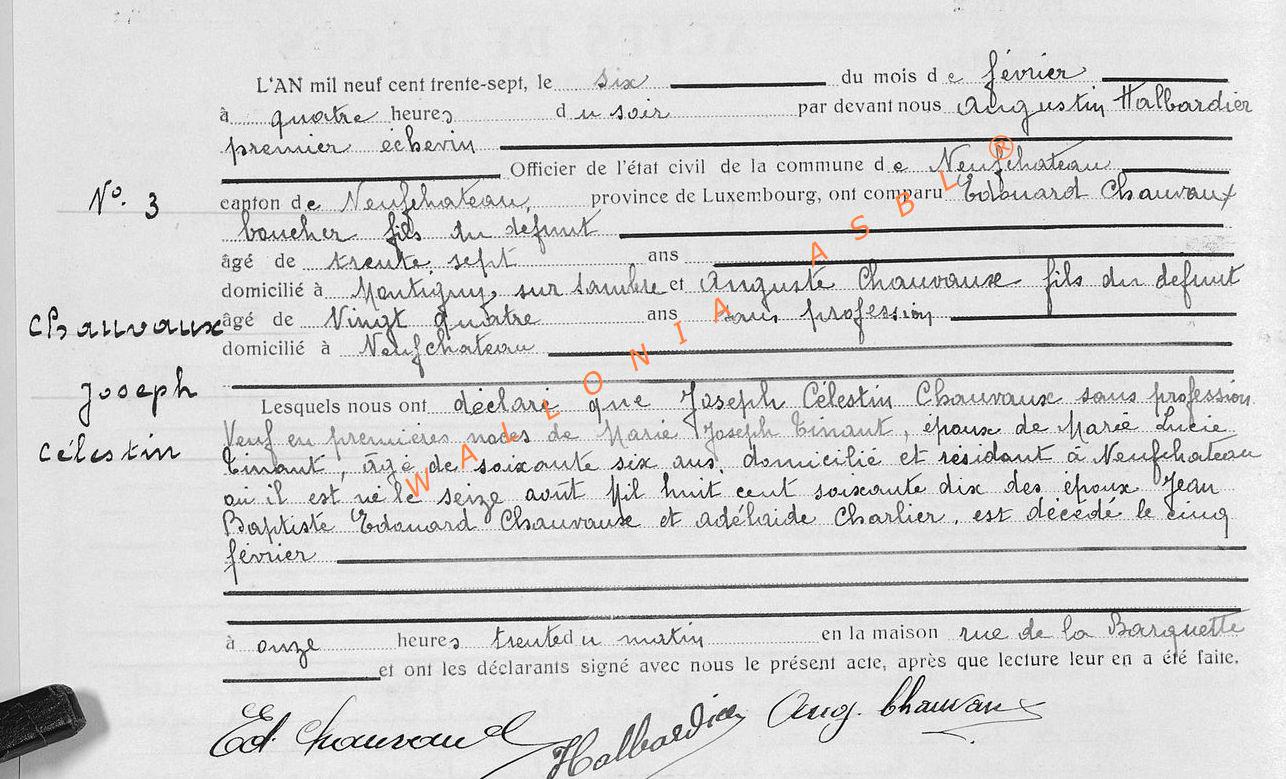 L'AN mil neuf cent trente-sept, le six du mois de février
à quatre heures du soir par devant nous Augustin Halbardier
premier échevin
Officier de l'état civil de la commune de Neufchateau
No. 3
canton de Neufchateau, province de Luxembourg, ont comparu Edouard Chauvaux
boucher fils du défunt
âgé de trente sept ans
domicilié à Montigny sur Sambre et Auguste Chauvaux fils du défunt
Chauvaux
âgé de Vingt quatre ans sans profession
domicilié à Neufchateau
Joseph
Célestin
Lesquels nous ont déclaré que Joseph Célestin Chauvaux sans profession
Veuf en premières noces de Marie Joseph Tinant, époux de Marie Lucie
Tinant, âgé de soixante six ans, domicilié et résidant à Neufchateau
où il est né le seize août Mil huit cent soixante dix des époux Jean
Baptiste Edouard Chauvaux et adélaide Charlier, est décédé le cinq
février
à onze heures trente du matin en la maison rue de la Barquette
et ont les déclarants signé avec nous le présent acte, après que lecture leur en a été faite.
Ed Chauvaux Halbardier Aug. Chauvaux
WALLONIA ASBL ®